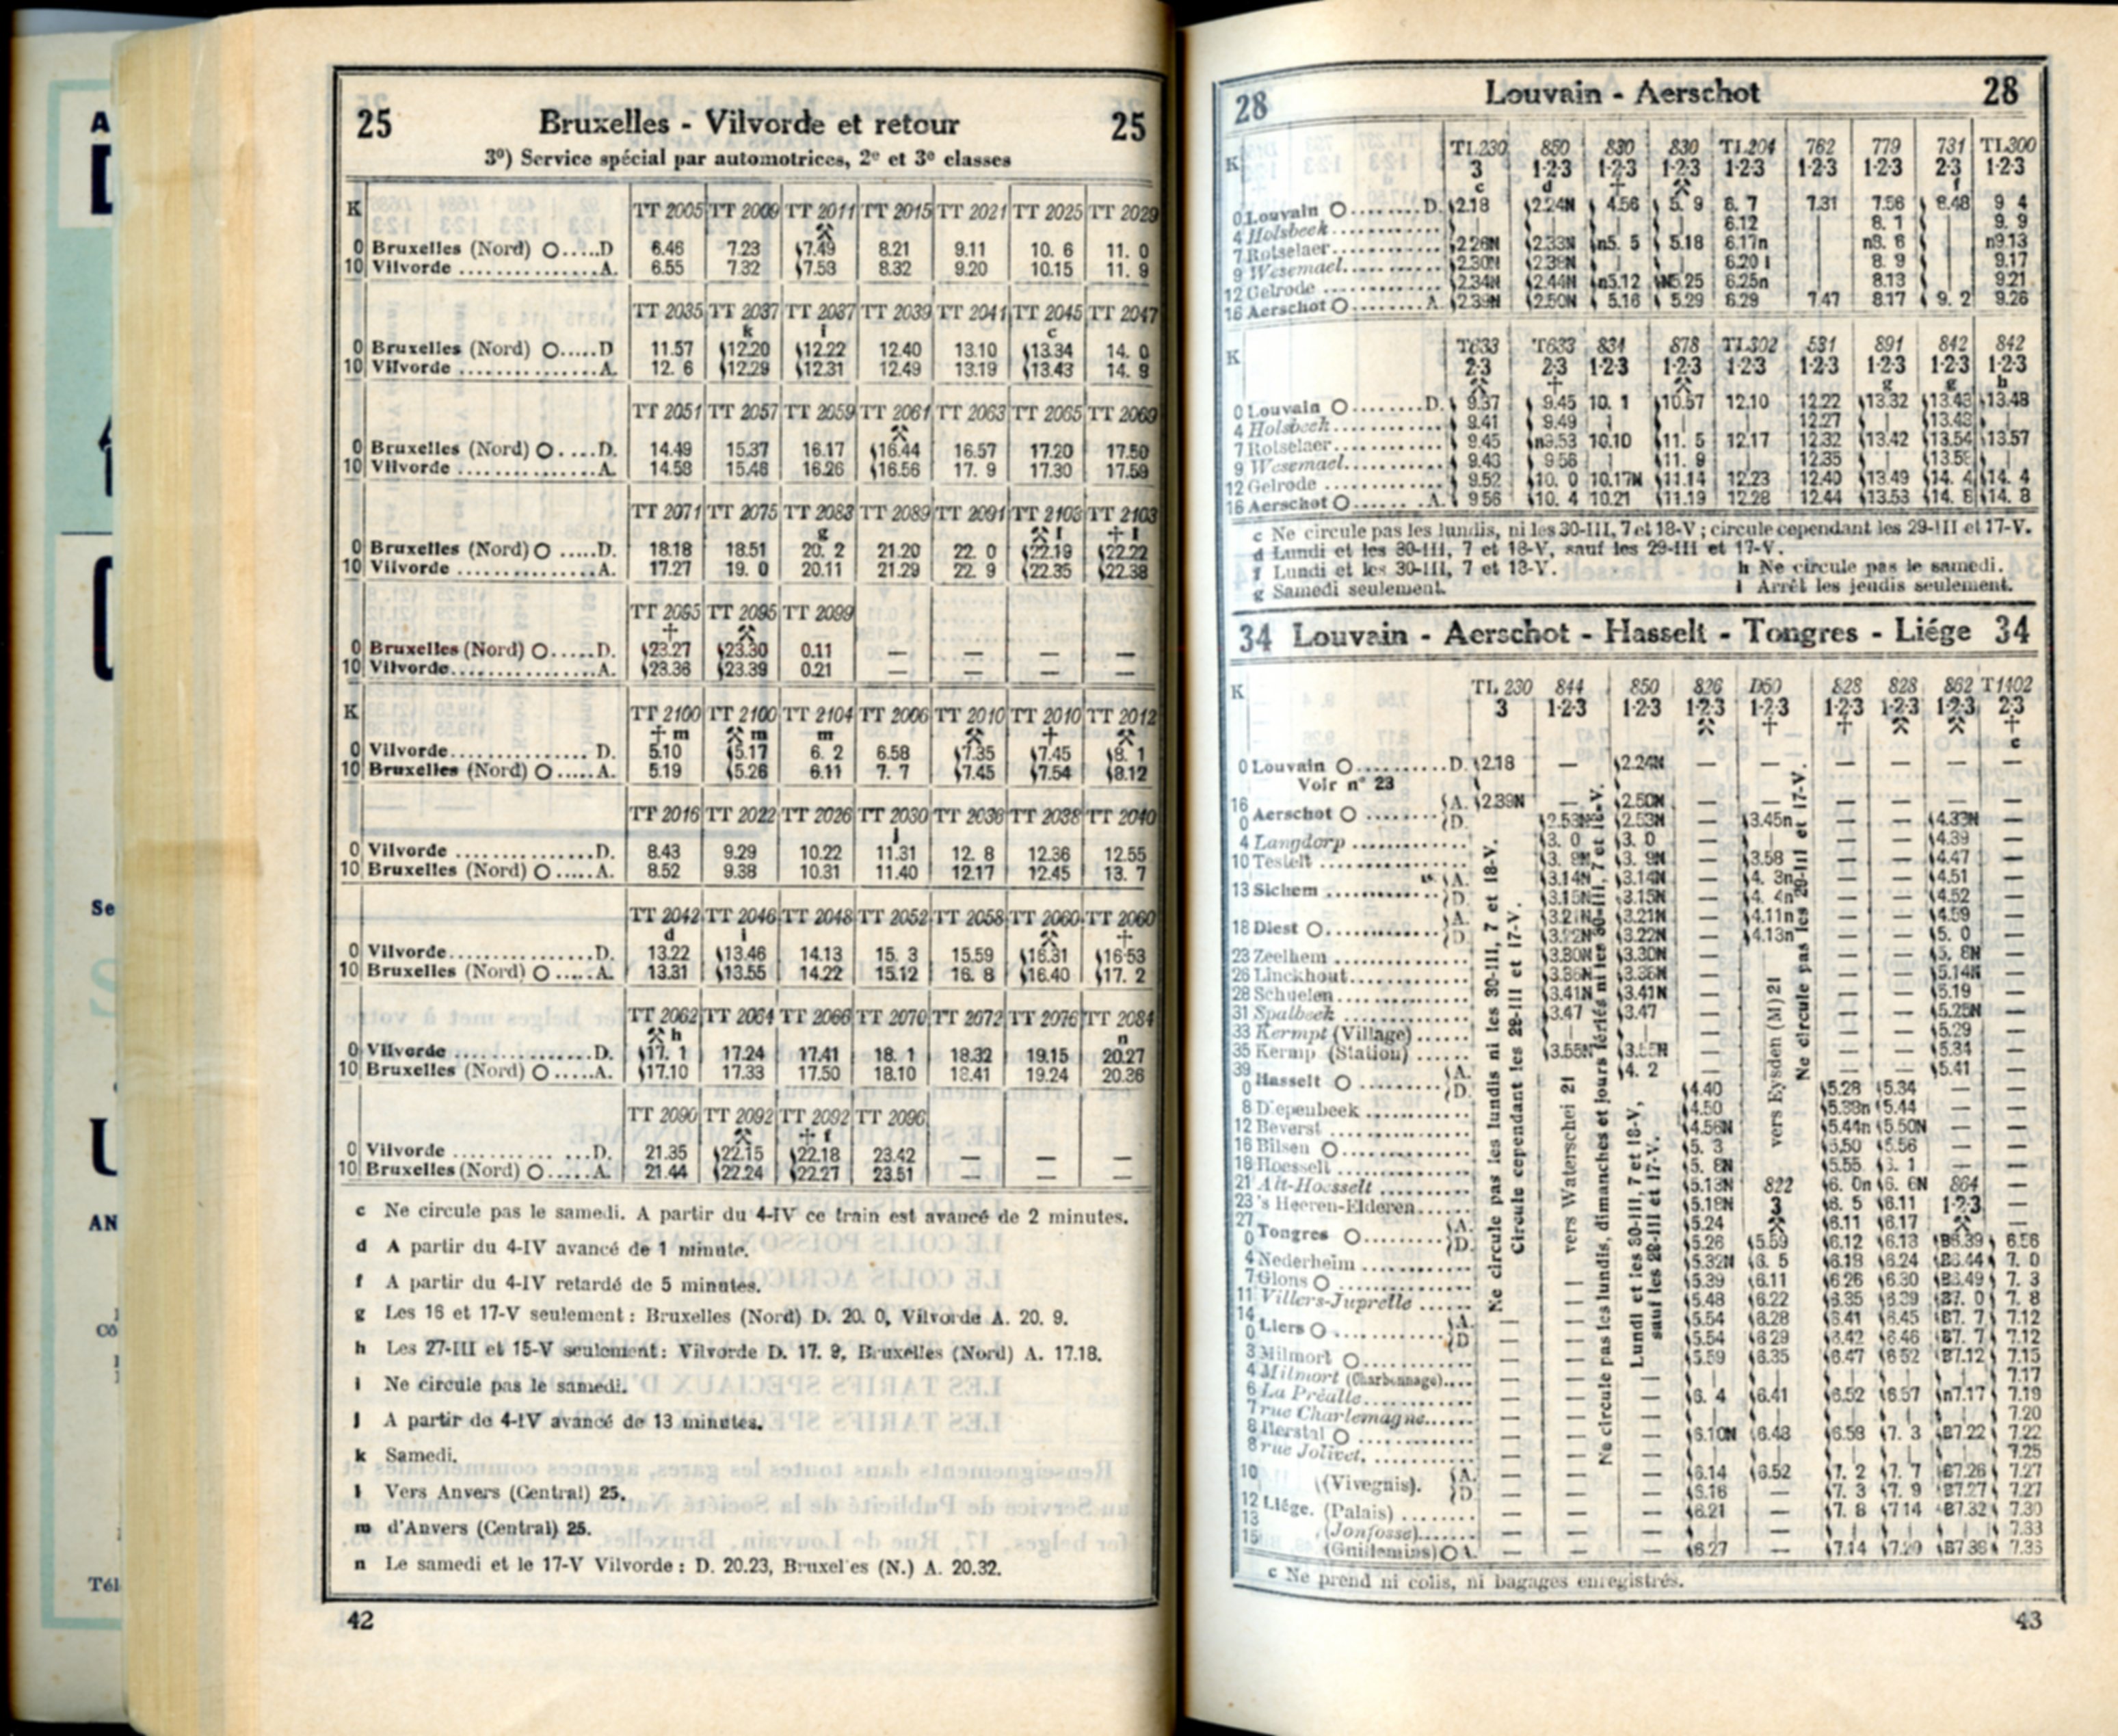 25 Bruxelles - Vilvorde et retour 25
3º) Service spécial par automotrices, 2e et 3e classes
K TT 2005 TT 2009 TT 2011 TT 2015 TT 2021 TT 2025 TT 2029
0 Bruxelles (Nord) D 6.46 7.23 7.49 8.21 9.11 10. 6 11. 0
10 Vilvorde A. 6.55 7.32 7.58 8.32 9.20 10.15 11. 9
TT 2035 TT 2037 TT 2037 TT 2039 TT 2041 TT 2045 TT 2047
k i c
0 Bruxelles (Nord) D 11.57 12.20 12.22 12.40 13.10 13.34 14. 0
10 Vilvorde A. 12. 6 12.29 12.31 12.49 13.19 13.43 14. 9
TT 2051 TT 2057 TT 2059 TT 2061 TT 2063 TT 2065 TT 2069
0 Bruxelles (Nord) D. 14.49 15.37 16.17 16.44 16.57 17.20 17.50
10 Vilvorde A. 14.58 15.46 16.26 16.56 17. 9 17.30 17.59
TT 2071 TT 2075 TT 2083 TT 2089 TT 2091 TT 2103 TT 2103
g f † f
0 Bruxelles (Nord) D. 18.18 18.51 20. 2 21.20 22. 0 22.19 22.22
10 Vilvorde A. 17.27 19. 0 20.11 21.29 22. 9 22.35 22.38
TT 2095 TT 2095 TT 2099
†
0 Bruxelles (Nord) D. 23.27 23.30 0.11 — — — —
10 Vilvorde A. 23.36 23.39 0.21 — — — —
K TT 2100 TT 2100 TT 2104 TT 2006 TT 2010 TT 2010 TT 2012
† m m m †
0 Vilvorde D. 5.10 5.17 6. 2 6.58 7.35 7.45 8. 1
10 Bruxelles (Nord) A. 5.19 5.26 6.11 7. 7 7.45 7.54 8.12
TT 2016 TT 2022 TT 2026 TT 2030 TT 2036 TT 2038 TT 2040
j
0 Vilvorde D. 8.43 9.29 10.22 11.31 12. 8 12.36 12.55
10 Bruxelles (Nord) A. 8.52 9.38 10.31 11.40 12.17 12.45 13. 7
TT 2042 TT 2046 TT 2048 TT 2052 TT 2058 TT 2060 TT 2060
d i †
0 Vilvorde D. 13.22 13.46 14.13 15. 3 15.59 16.31 16.53
10 Bruxelles (Nord) A. 13.31 13.55 14.22 15.12 16. 8 16.40 17. 2
TT 2062 TT 2064 TT 2066 TT 2070 TT 2072 TT 2076 TT 2084
h n
0 Vilvorde D. 17. 1 17.24 17.41 18. 1 18.32 19.15 20.27
10 Bruxelles (Nord) A. 17.10 17.33 17.50 18.10 18.41 19.24 20.36
TT 2090 TT 2092 TT 2092 TT 2096
† f
0 Vilvorde D. 21.35 22.15 22.18 23.42 — — —
10 Bruxelles (Nord) A. 21.44 22.24 22.27 23.51 — — —
c Ne circule pas le samedi. A partir du 4-IV ce train est avancé de 2 minutes.
d A partir du 4-IV avancé de 1 minute.
f A partir du 4-IV retardé de 5 minutes.
g Les 16 et 17-V seulement : Bruxelles (Nord) D. 20. 0, Vilvorde A. 20. 9.
h Les 27-III et 15-V seulement : Vilvorde D. 17. 9, Bruxelles (Nord) A. 17.18.
i Ne circule pas le samedi.
j A partir de 4-IV avancé de 13 minutes.
k Samedi.
l Vers Anvers (Central) 25.
m d'Anvers (Central) 25.
n Le samedi et le 17-V Vilvorde : D. 20.23, Bruxelles (N.) A. 20.32.
42
28 Louvain - Aerschot 28
K TL230 850 830 830 TL204 762 779 731 TL300
3 1-2-3 1-2-3 1-2-3 1-2-3 1-2-3 1-2-3 2-3 1-2-3
c d † f
0 Louvain D. 2.18 2.24N 4.56 5. 9 6. 7 7.31 7.56 8.48 9 4
4 Holsbeek 6.12 8. 1 9. 9
7 Rotselaer 2.26N 2.33N n5. 5 5.18 6.17n n8. 6 n9.13
9 Wesemael 2.30N 2.38N 6.20 8. 9 9.17
12 Gelrode 2.34N 2.44N n5.12 N5.25 6.25n 8.13 9.21
16 Aerschot A. 2.39N 2.50N 5.16 5.29 6.29 7.47 8.17 9. 2 9.26
K T633 T633 834 878 TL302 531 891 842 842
2-3 2-3 1-2-3 1-2-3 1-2-3 1-2-3 1-2-3 1-2-3 1-2-3
† g g h
0 Louvain D. 9.37 9.45 10. 1 10.57 12.10 12.22 13.32 13.43 13.48
4 Holsbeek 9.41 9.49 12.27 13.43
7 Rotselaer 9.45 n9.53 10.10 11. 5 12.17 12.32 13.42 13.54 13.57
9 Wesemael 9.43 9 56 11. 9 12.35
12 Gelrode 9.52 10. 0 10.17N 11.14 12.23 12.40 13.49 14. 4 14. 4
16 Aerschot A. 9 56 10. 4 10.21 11.19 12.28 12.44 13.53 14. 8 14. 8
c Ne circule pas les lundis, ni les 30-III, 7 et 18-V ; circule cependant les 29-III et 17-V.
d Lundi et les 30-III, 7 et 18-V, sauf les 29-III et 17-V.
f Lundi et les 30-III, 7 et 18-V. h Ne circule pas le samedi.
g Samedi seulement. l Arrêt les jeudis seulement.
34 Louvain - Aerschot - Hasselt - Tongres - Liége 34
K TL 230 844 850 826 D50 828 828 862 T1402
3 1-2-3 1-2-3 1-2-3 1-2-3 1-2-3 1-2-3 1-2-3 2-3
† † †
c
0 Louvain D. 2.18 — 2.24N — — — — — —
Voir nº 23
16 Aerschot A. 2.39N — 2.50N — — — — — —
0 D. 2.53N 2.53N — 3.45n — — 4.33N —
4 Langdorp 3. 0 3. 0 — — — 4.39 —
10 Testelt 3. 9N 3. 9N — 3.58 — — 4.47 —
13 Sichem A. 3.14N 3.14N — 4. 3n — — 4.51 —
D. 3.15N 3.15N — 4. 4n — — 4.52 —
18 Diest A. 3.21N 3.21N — 4.11n — — 4.59 —
D. 3.22N 3.22N — 4.13n — — 5. 0 —
23 Zeelhem 3.30N 3.30N — — — 5. 8N —
26 Linckhout 3.36N 3.36N — — — 5.14N —
28 Schuelen 3.41N 3.41N — — — 5.19 —
31 Spalbeek 3.47 3.47 — — — 5.25N —
33 Kermpt (Village) — — — 5.29 —
35 Kermp (Station) 3.55N — — — 5.34 —
39 Hasselt A. 4. 2 — — — 5.41 —
0 D. 4.40 5.28 5.34 — —
8 Diepenbeek 4.50 5.38n 5.44 — —
12 Beverst 4.56N 5.44n 5.50N — —
16 Bilsen 5. 3 5.50 5.56 — —
18 Hoesselt 5. 8N 5.55 6. 1 — —
21 Alt-Hoesselt 5.13N 822 6. 0n 6. 6N 864 —
23 's Heeren-Elderen 5.18N 3 6. 5 6.11 1-2-3 —
27 Tongres A. 5.24 6.11 6.17 —
0 D. 5.26 5.59 6.12 6.13 B6.39 6.56
4 Nederheim 5.32N 6. 5 6.18 6.24 B6.44 7. 0
7 Glons 5.39 6.11 6.26 6.30 B6.49 7. 3
11 Villers-Juprelle — — 5.48 6.22 6.35 6.39 B7. 0 7. 8
14 Liers A. — — — 5.54 6.28 6.41 6.45 B7. 7 7.12
0 D — — — 5.54 6 29 6.42 6.46 B7. 7 7.12
3 Milmort — — — 5.59 6.35 6.47 6 52 B7.12 7.15
4 Milmort (Charbonnage) 7.17
6 La Préalle — — — 6. 4 6.41 6.52 6.57 n7.17 7.19
7 rue Charlemagne 7.20
8 Herstal — — — 6.10N 6.48 6.58 7. 3 B7.22 7.22
8 rue Jolivet. 7.25
10 (Vivegnis). A. — — — 6.14 6.52 7. 2 7. 7 B7.26 7.27
D. — — — 6.16 — 7. 3 7. 9 B7.27 7.27
12 Liége. (Palais) — — — 6.21 — 7. 8 7 14 B7.32 7.30
13 (Jonfosse) 7.33
15 (Guillemins) A. — — — 6.27 — 7.14 7.20 B7 38 7.35
Ne circule pas les lundis ni les 30-III, 7 et 18-V.
Circule cependant les 29-III et 17-V.
vers Waterschei 21
Ne circule pas les lundis, dimanches et jours fériés ni les 30-III, 7 et 18-V.
Lundi et les 30-III, 7 et 18-V,
sauf les 29-III et 17-V.
vers Eysden (M) 21
Ne circule pas les 29-III et 17-V.
c Ne prend ni colis, ni bagages enregistrés.
43
A
Se
U
AN
Tél